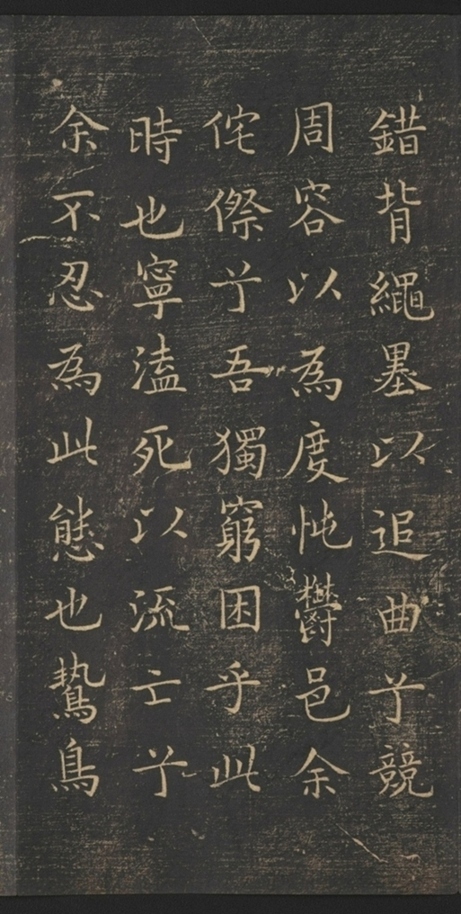 錯背繩墨以追曲兮競
周容以為度忳鬱邑余
侘傺兮吾獨窮困乎此
時也寧溘死以流亡兮
余不忍為此態也鷙鳥